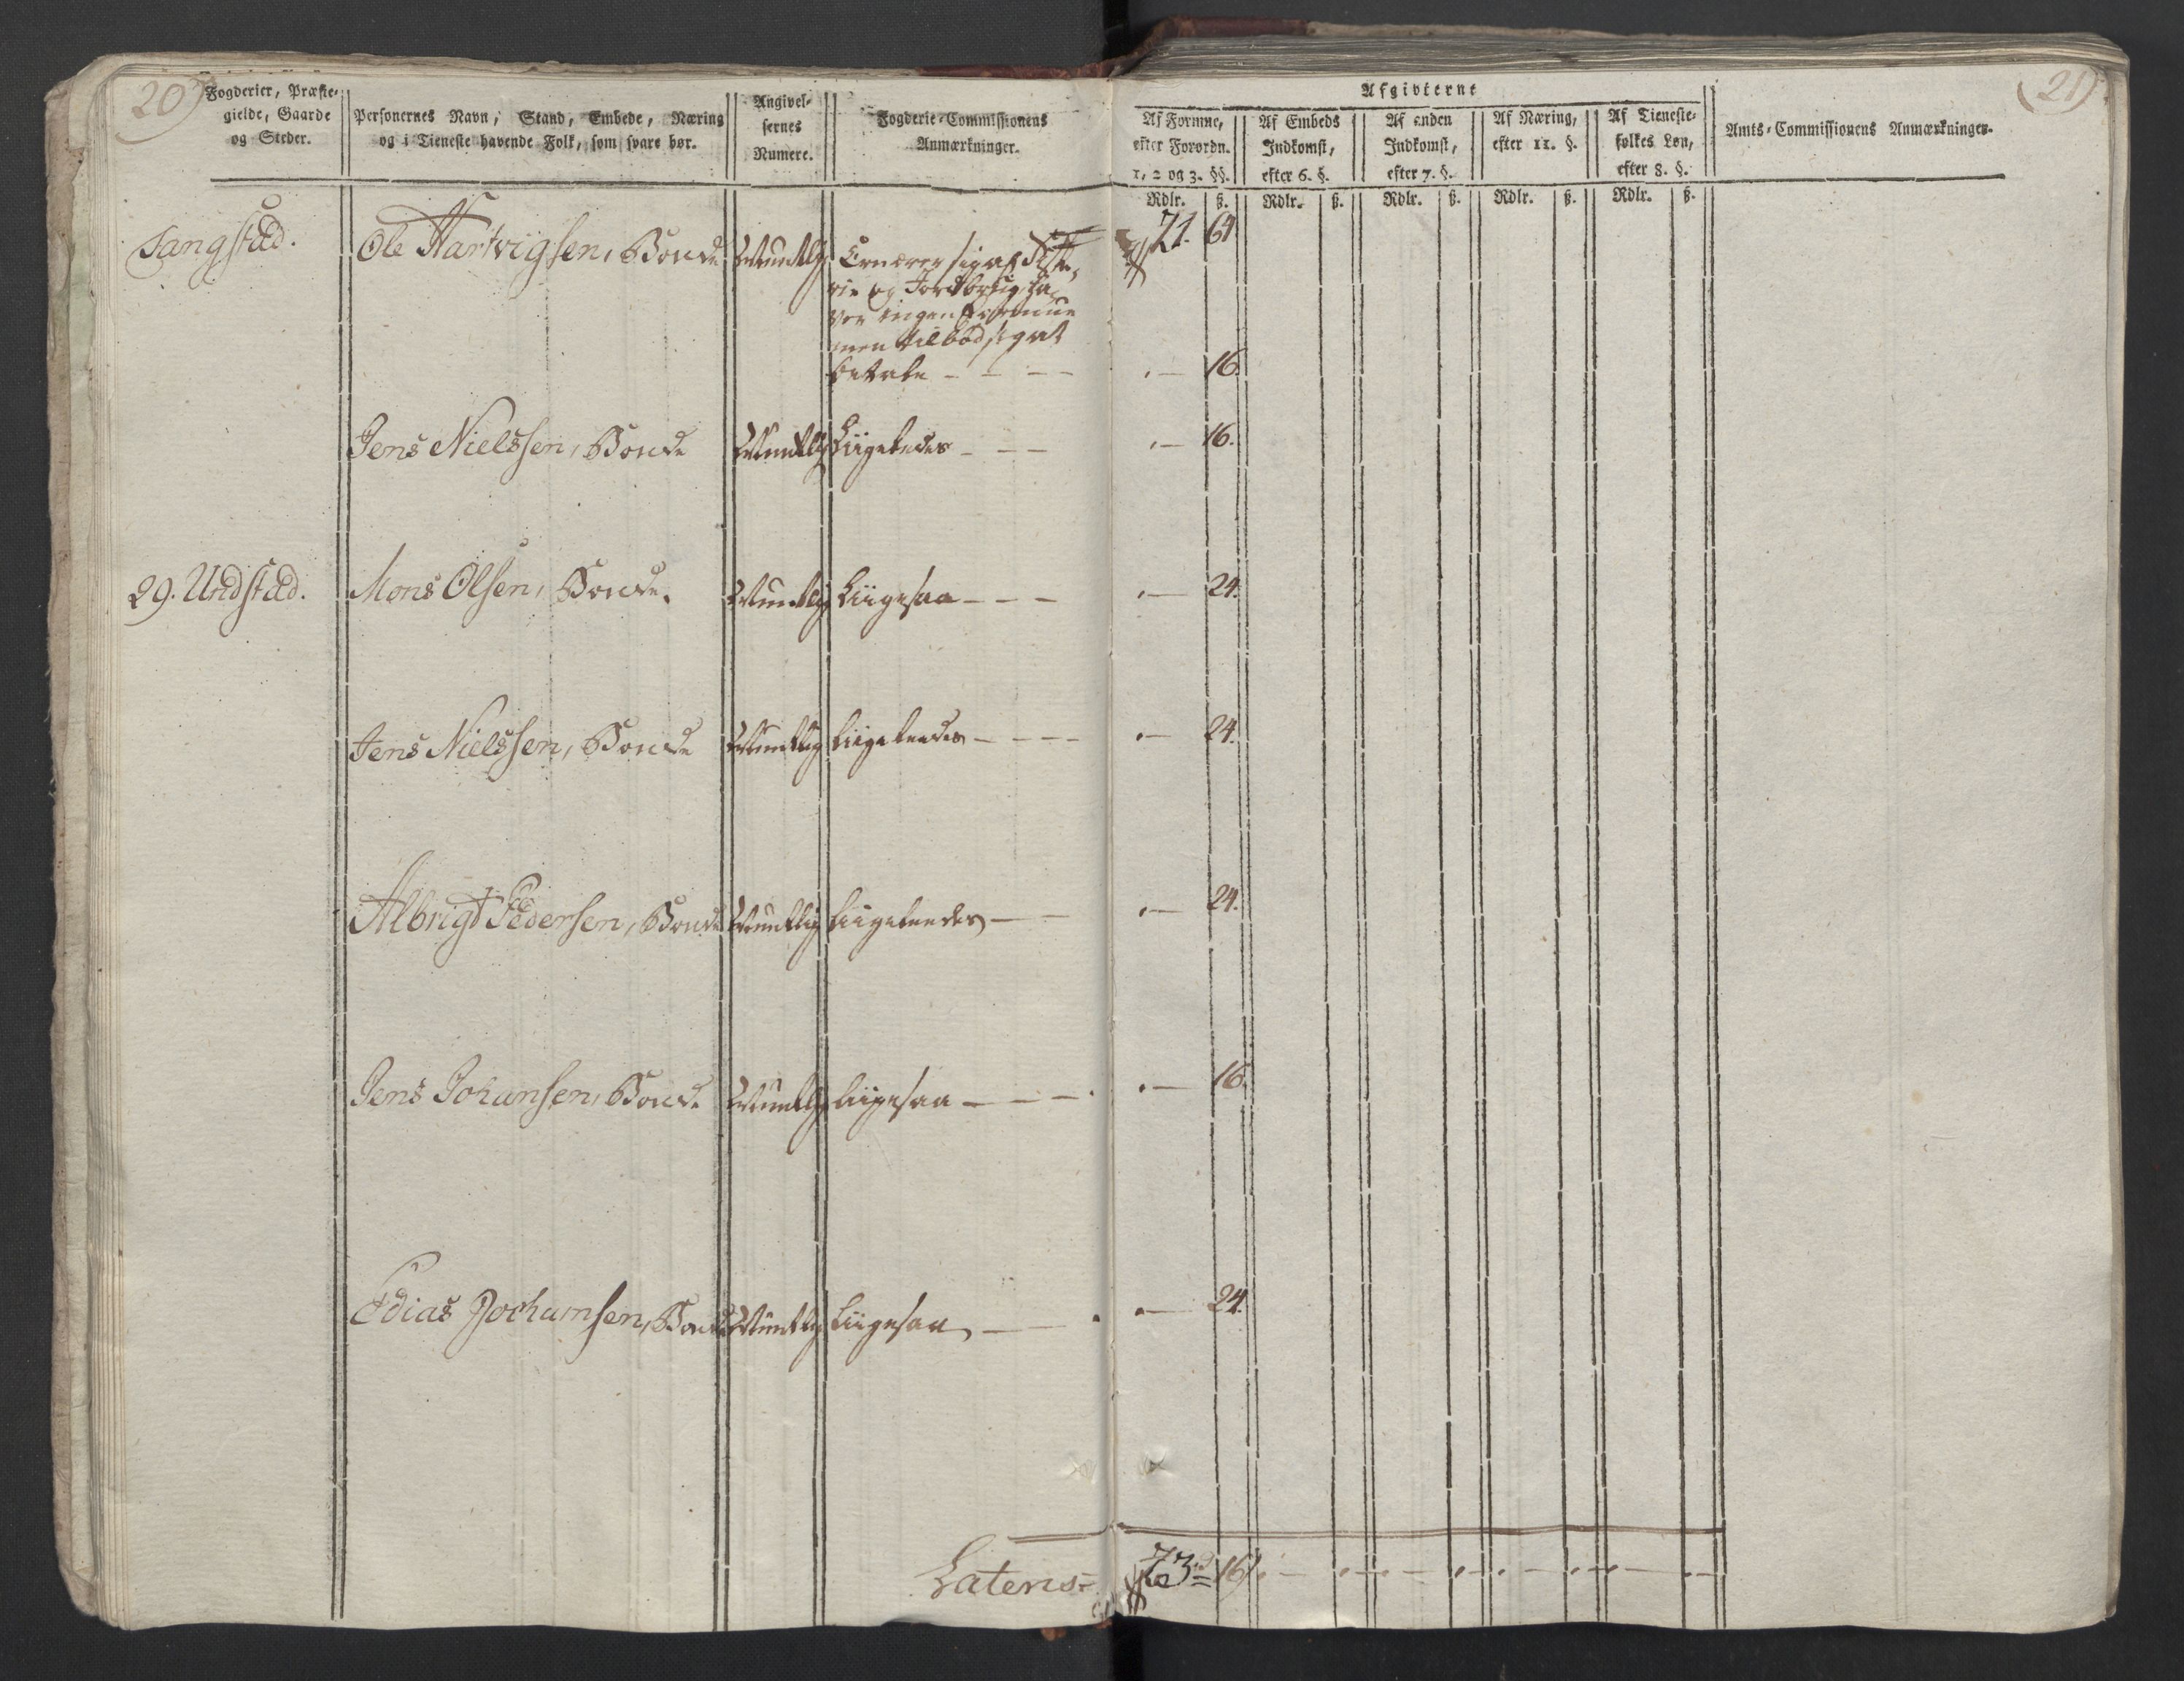 20)
Fogderier, Præste-
gielde, Gaarde
og Steder.
Personernes Navn, Stand, Embede, Næring
og i Tieneste havende Folk, som svare bør.
Angivel-
sernes
Numere.
Fogderie-Commissionens
Anmærkninger.
Sangstad.
Ole Hartvigsen, Bonde Mundtlig Ernærer sig af Fiske-
rie og Jordbrug, ha-
ver ingen Formue
men tilbød sig at
betale - - - -
Jens Nielssen, Bonde Mundtlig Liigeledes - - -
29. Undstad. Mons Olsen, Bonde. Mundtlig Liigesaa - - -
Jens Nielssen, Bonde Mundtlig Liigeledes - - - -
Albrigt Pedersen, Bonde Mundtlig Liigeledes - -
Jens Johansen, Bonde Mundtlig Liigesaa - - - -
Edias Jochumsen, Bonde Mundtlig Liigesaa - -
Latens
(21)
Afgivterne
Af Formue,
efter Forordn.
1, 2 og 3. §§.
Af Embeds
Indkomst,
efter 6. §.
Af anden
Indkomst,
efter 7. §.
Af Næring,
efter 11. §.
Af Tieneste-
folkes Løn,
efter 8. §.
Amts-Commissionens Anmærkninger.
Rdlr. ß. Rdlr. ß. Rdlr. ß. Rdlr. ß. Rdlr. ß.
71. 64
. — 16.
. — 16.
. — 24.
. — 24.
. — 24.
. — 16.
. — 24.
73 16